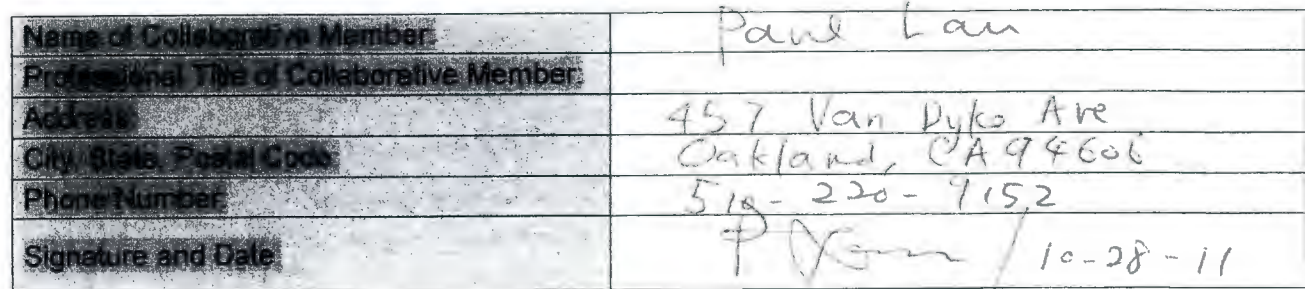 Name of Collaborative Member: Paul Lau
Professional Title of Collaborative Member:
Address: 457 Van Dyke Ave
City, State, Postal Code: Oakland, CA 94606
Phone Number: 510-220-9152
Signature and Date / 10-28-11